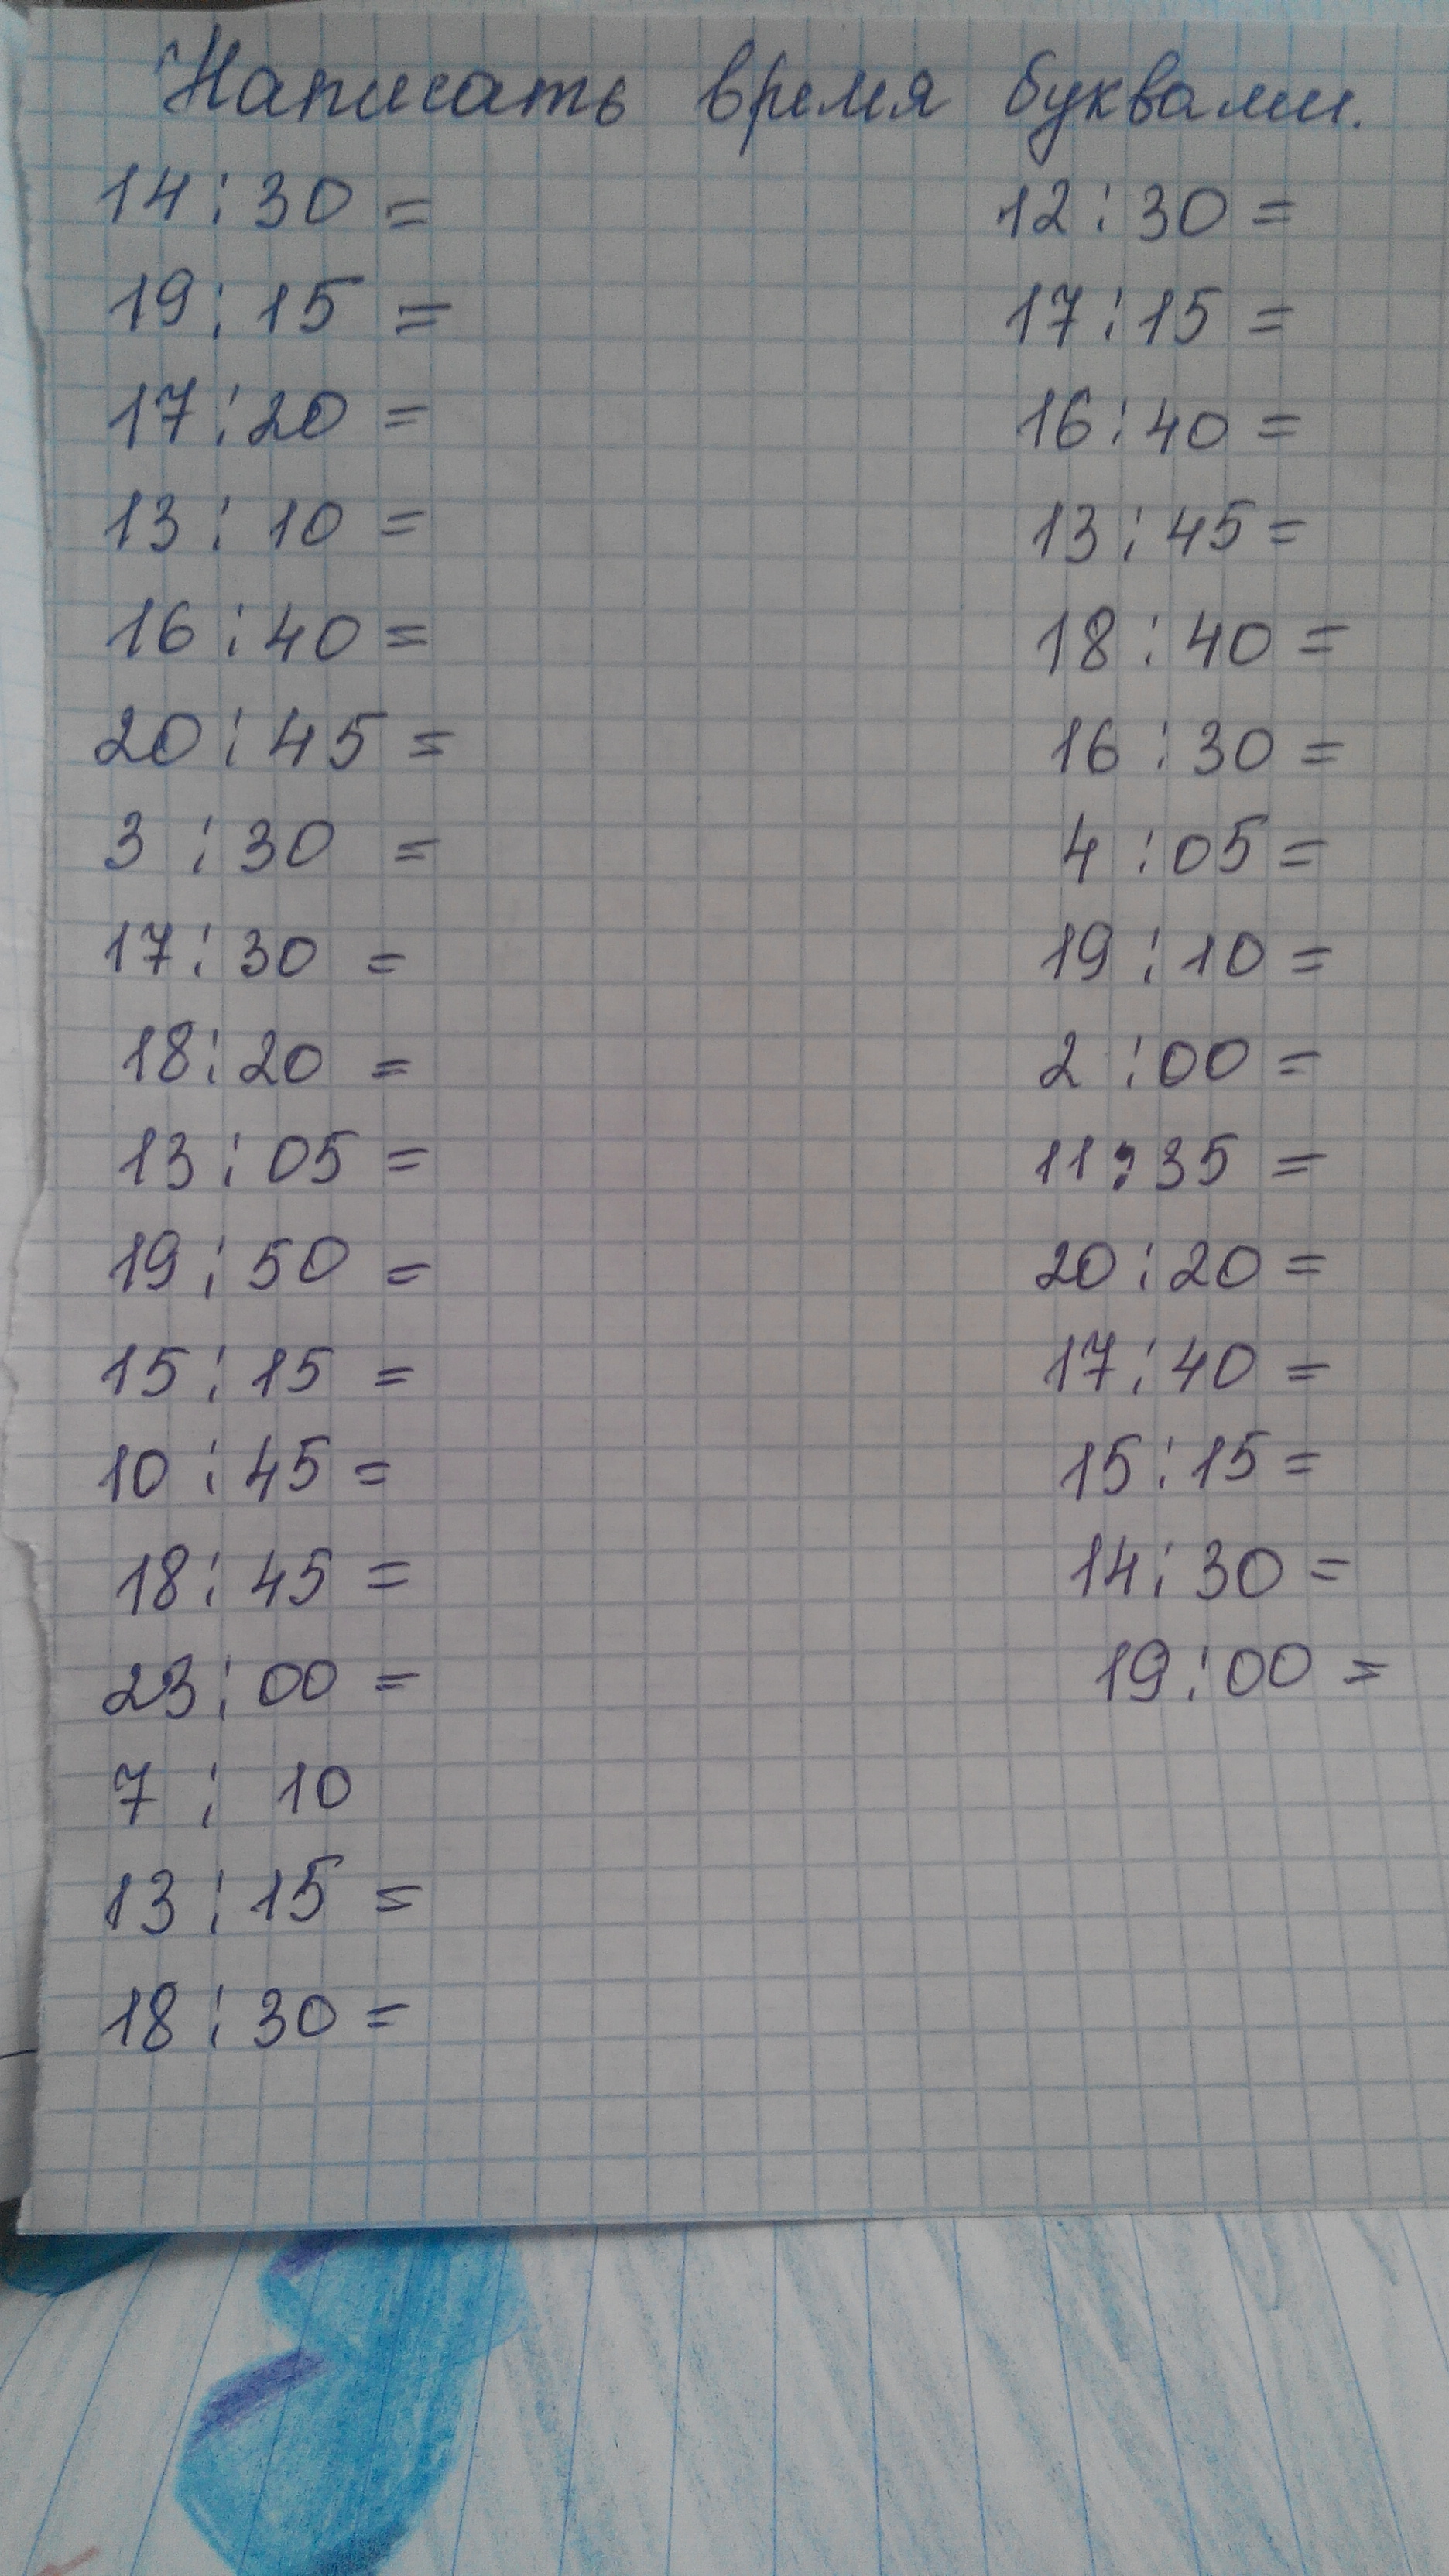 Написать время буквами.
14:30 = 12:30 =
19:15 = 17:15 =
17:20 = 16:40 =
13:10 = 13:45 =
16:40 = 18:40 =
20:45 = 16:30 =
3:30 = 4:05 =
17:30 = 19:10 =
18:20 = 2:00 =
13:05 = 11:35 =
19:50 = 20:20 =
15:15 = 17:40 =
10:45 = 15:15 =
18:45 = 14:30 =
23:00 = 19:00 =
7:10
13:15 =
18:30 =